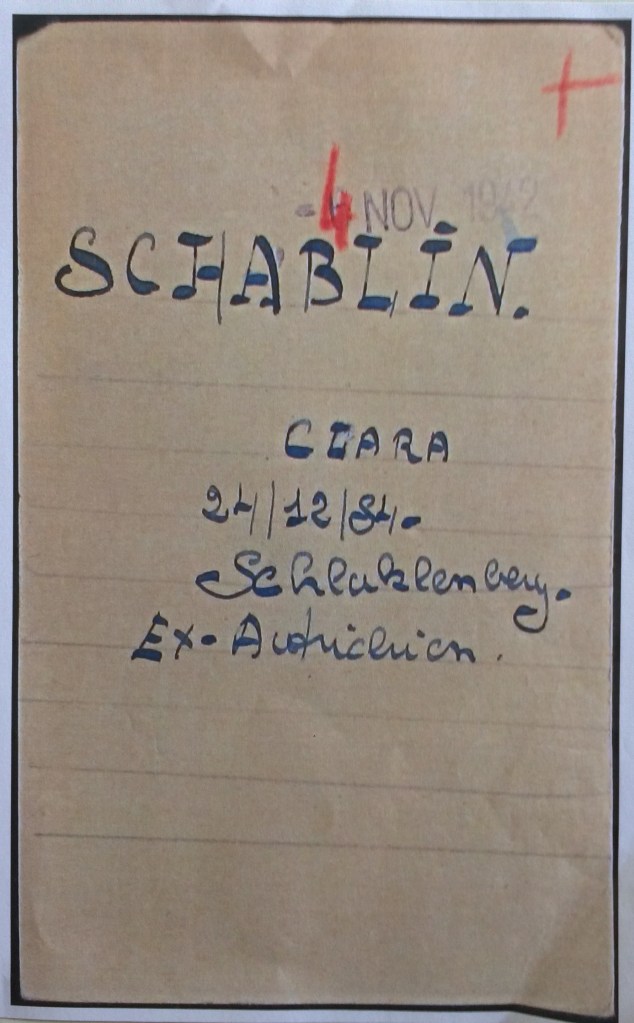 -4 NOV 1942
SCHABLIN.
CLARA
24/12/84.
Schlaklenberg.
Ex-Autrichien.